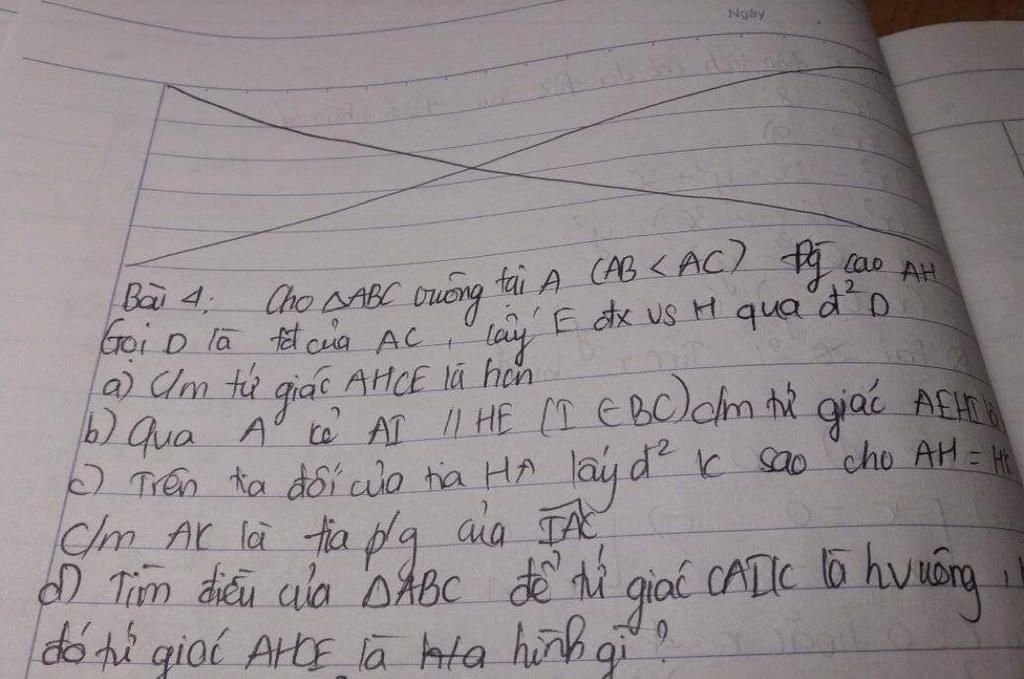 Ngày
Bài 4: Cho △ABC vuông tại A (AB < AC) đg cao AH
Gọi D là tđ của AC, lấy E đx vs H qua đ² D
a) C/m tứ giác AHCE là hcn
b) Qua A kẻ AI // HE (I ∈ BC) c/m tứ giác AEHI là
c) Trên tia đối của tia HA lấy đ² K sao cho AH = HK
C/m AK là tia p/g của IAC
d) Tìm điều của △ABC để tứ giác CAIK là hvuông,
đó tứ giác AHCE là hình gì?